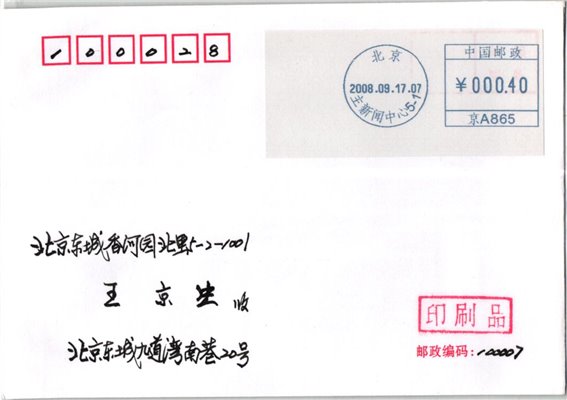 100028
北京
2008.09.17.07
主新闻中心5-1
中国邮政
￥000.40
京A865
北京东城香河园北里5-2-1001
王京生 收
印刷品
北京东城九道湾南巷20号
邮政编码：100007